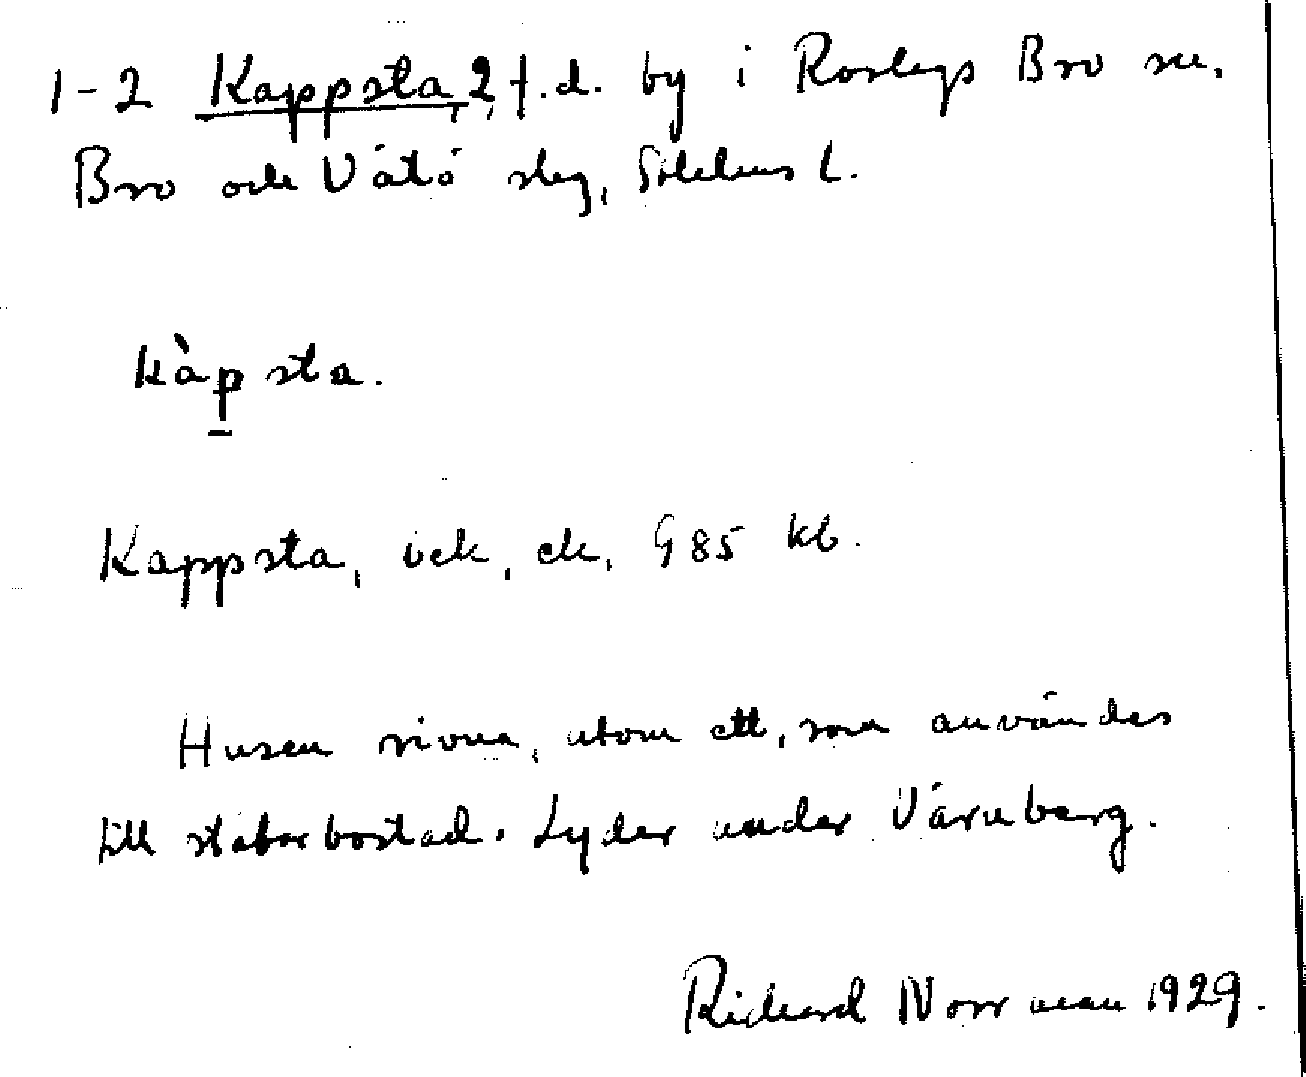 1-2 Kappsta, 2, f.d. by i Roslags Bro sn.
Bro och Vätö slg, Sthlms l.
kàpsta.
Kappsta, uck, ek, G 85 kb.
Husen rivna, utom ett, som användes
till statarbostad. Lyder under Värnberg.
Richard Norrman 1929.